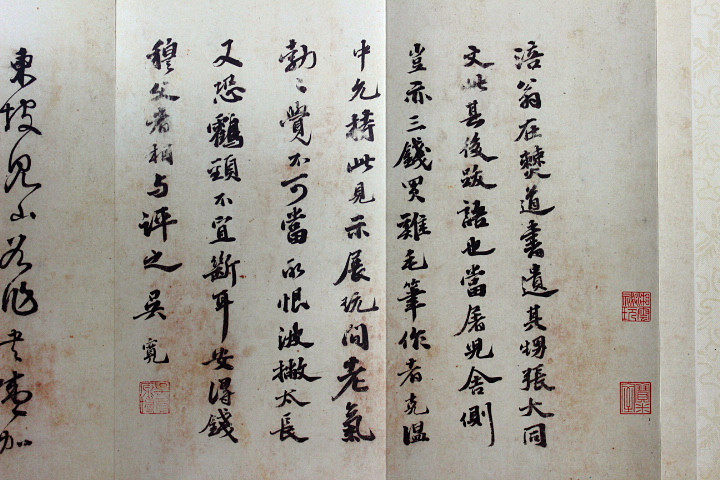 涪翁在僰道書遺其甥張大同
文此其後跋語也當屠兒舍側
豈亦三錢買雞毛筆作者克温
中允持此見示展玩間老氣
勃〻覺不可當所恨波撇太長
又恐鶴頸不宜斷耳安得錢
穆父者相与評之吳寬
東坡見山谷作